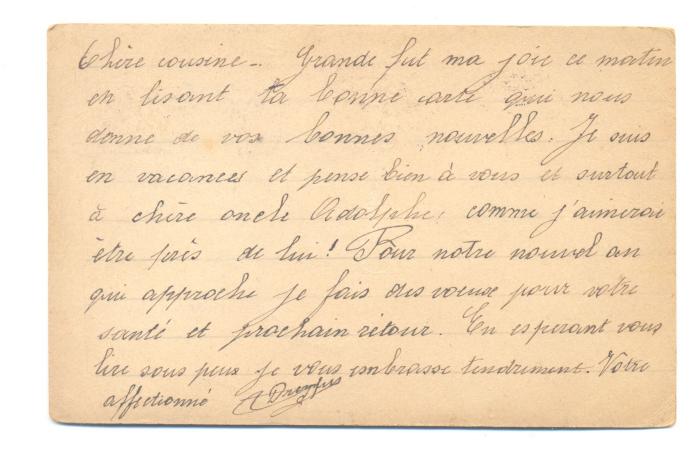 Chère cousine -. Grande fut ma joie ce matin
en lisant ta bonne carte qui nous
donne de vos bonnes nouvelles. Je suis
en vacances et pense bien à vous et surtout
à chère oncle Adolphe, comme j'aimerai
être près de lui! Pour notre nouvel an
qui approche je fais des voeux pour votre
santé et prochain retour. En esperant vous
lire sous peux je vous embrasse tendrement. Votre
affectionné A Dreyfus